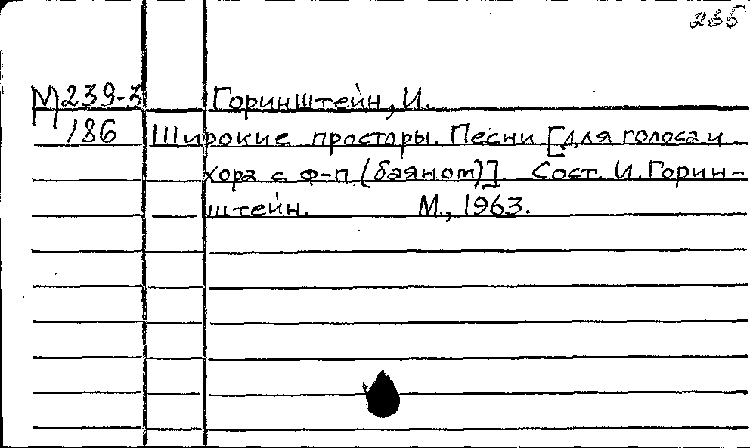 235
М239-3 Горинштейн, И.
186 Широкие просторы. Песни [для голоса и
хора с ф-п (баяном)]. Сост. И. Горин-
штейн. М., 1963.